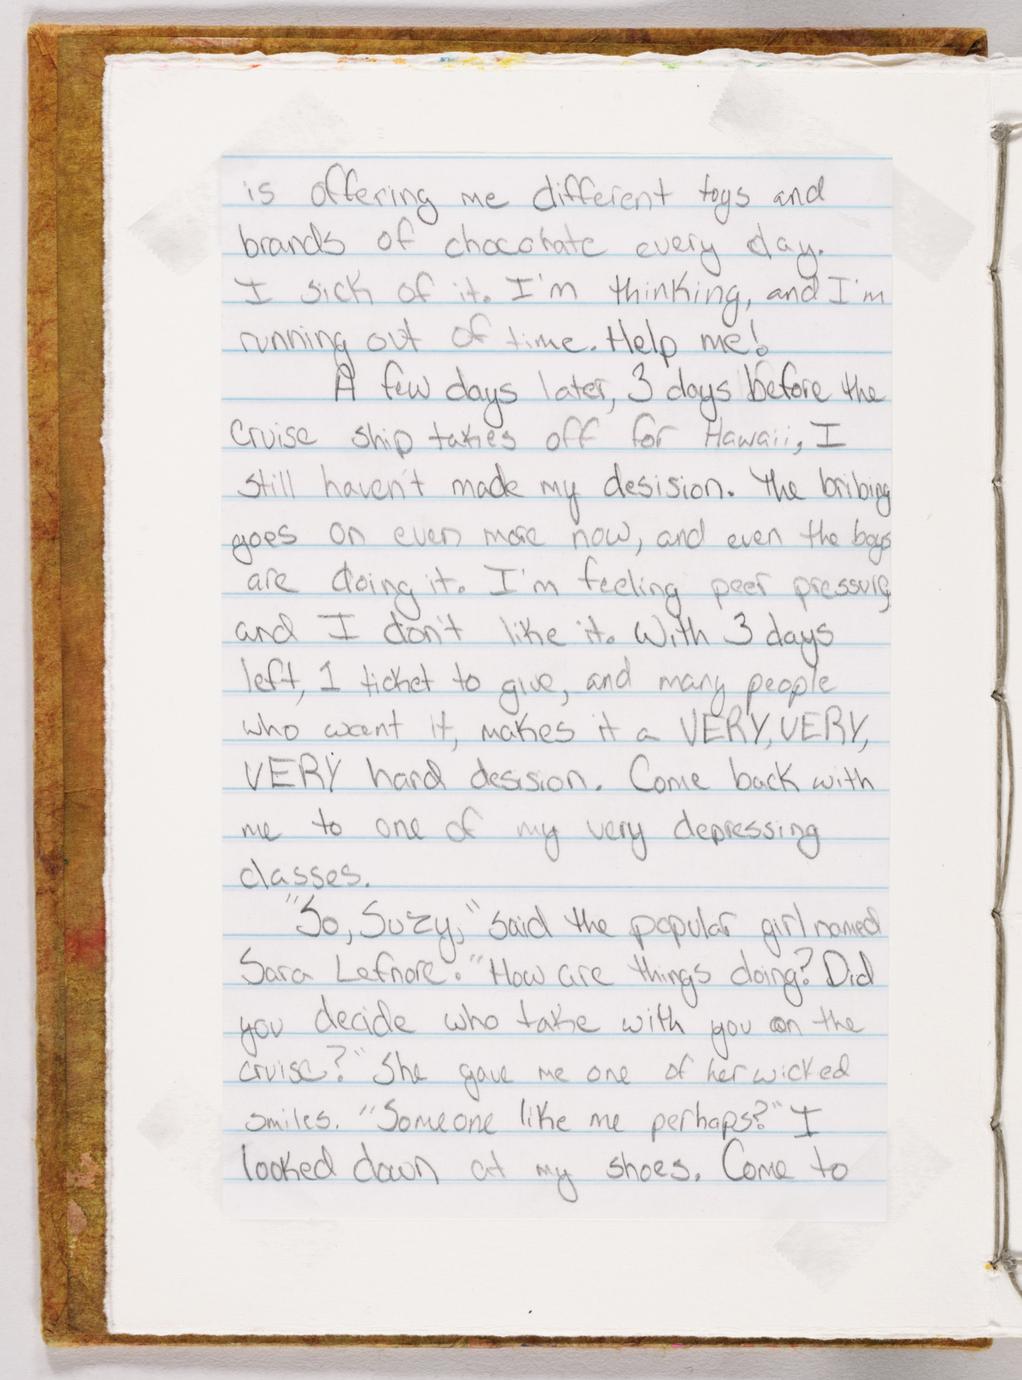 is offering me different toys and
brands of chocolate every day.
I sick of it. I'm thinking, and I'm
running out of time. Help me!
A few days later, 3 days before the
cruise ship takes off for Hawaii, I
still haven't made my desision. The bribing
goes on even more now, and even the boys
are doing it. I'm feeling peer pressure
and I don't like it. With 3 days
left, 1 ticket to give, and many people
who want it, makes it a VERY, VERY,
VERY hard desision. Come back with
me to one of my very depressing
classes.
"So, Suzy," said the popular girl named
Sara Lefnore. "How are things doing? Did
you decide who take with you on the
cruise?" She gave me one of her wicked
smiles. "Someone like me perhaps?" I
looked down at my shoes. Come to